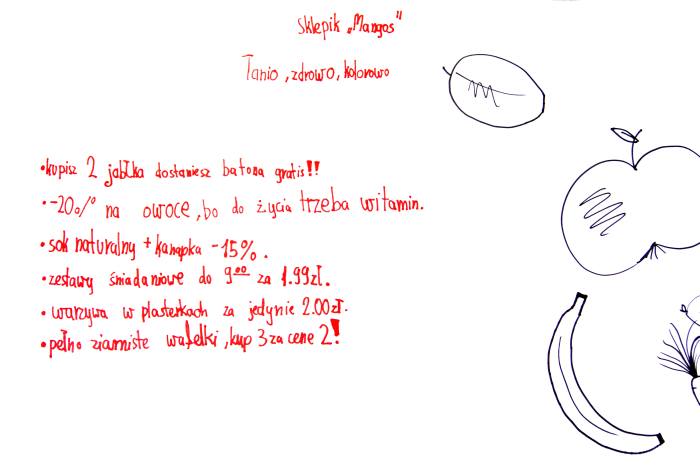 Sklepik „Mangos"
Tanio, zdrowo, kolorowo
•kupisz 2 jabłka dostaniesz batona gratis!!
•-20% na owoce, bo do życia trzeba witamin.
•sok naturalny + kanapka -15%.
•zestawy śniadaniowe do 9⁰⁰ za 1.99zł.
•warzywa w plasterkach za jedynie 2.00zł.
•pełno ziarniste wafelki, kup 3 za cene 2!